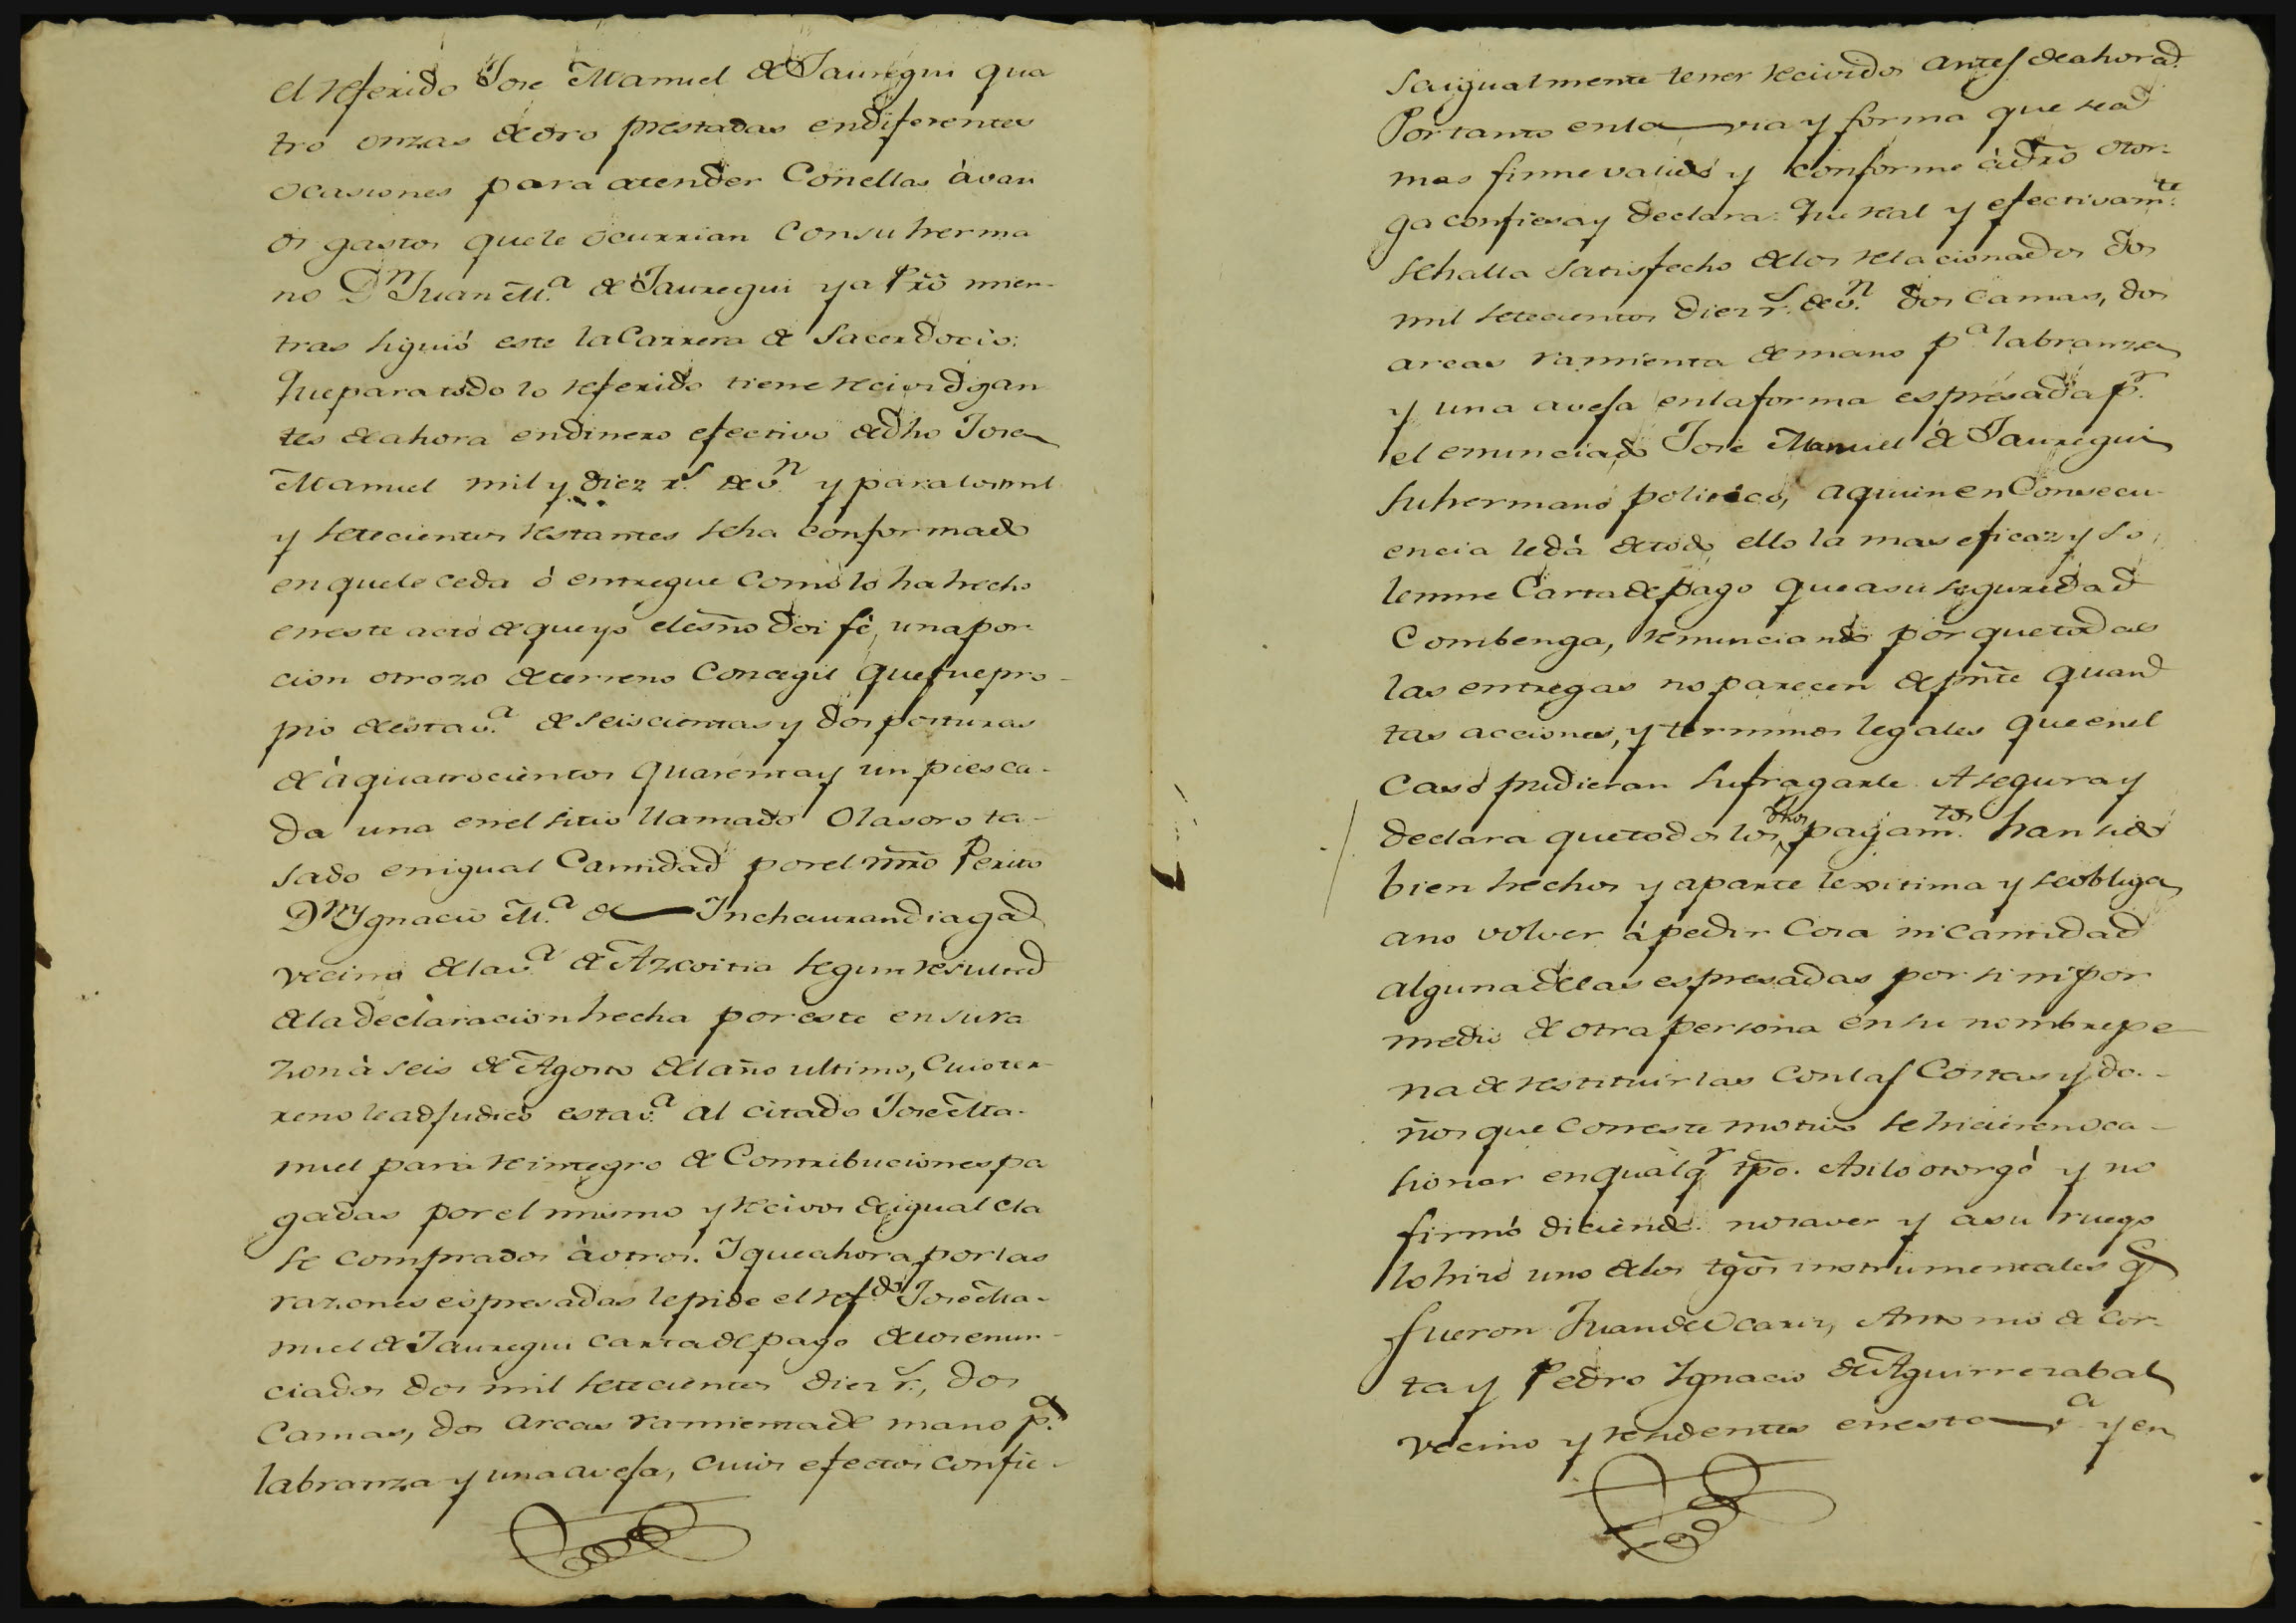 el referido Jose Manuel de Jauregui qua
tro onzas de oro prestadas en diferentes
ocasiones para atender Con ellas à vari
os gastos que le ocurrian Con su herma
no Dn Juan M.a de Jauregui ya Pro mien-
tras siguió este la Carrera de Sacerdocio:
Que para todo lo referido tiene recivido an
tes de ahora en dinero efectivo de dho Jose
Manuel mil y diez rs de v.n y para los mil
y setecientos restantes se ha conformado
en que le ceda ó entregue como lo ha hecho
en este acto de que yo el esno doi fé, una por
cion o trozo de terreno Concegil que fue pro-
pio de esta v.a de seiscientas y dos posturas
de à quatrocientos quarenta y un pies ca-
da una en el sitio llamado Olasoro ta-
sado en igual Cantidad por el mro Perito
Dn Ygnacio M.a de Inchaurandiaga
vecino de la v.a de Azcoitia segun resulta
de la declaracion hecha por este en su ra
zon à seis de Agosto del año ultimo, Cuio ter-
reno le adjudicó esta v.a al citado Jose Ma-
nuel para reintegro de Contribuciones pa
gadas por el mismo y recivos de igual cla
se comprados à otros. Y que ahora por las
razones espresadas le pide el refdo Jose Ma-
nuel de Jauregui carta de pago de los enun-
ciados dos mil setecientos diez rs., dos
Camas, dos arcas ramienta de mano p.a
labranza y una avesa, cuios efectos confie-
sa igualmente tener recividos antes de ahora.
Por tanto en la via y forma que sea
mas firme valido y conforme à dro otor-
ga confiesa y declara: Que real y efectivam.te
se halla satisfecho de los relacionados dos
mil setecientos diez rs. de v.n dos camas, dos
arcas ramienta de mano pa labranza
y una avesa en la forma espresada pr.
el enunciado Jose Manuel de Jauregui
su hermano politico, a quien en Consecu-
encia le dá de todo ello la mas eficaz y so
lemne Carta de pago que a su seguridad
Combenga, renunciando por que todas
las entregas no parecen de pnte quan
tas acciones, y terminos legales que en el
caso pudieran sufragarle. Asegura y
declara que todos los dhos pagam.tos han sido
bien hechos y a parte lexitima y se obliga
a no volver á pedir Cosa ni Cantidad
alguna de las espresadas por si ni por
medio de otra persona en su nombre pe-
na de restituirlas con las Costas y da-
ños que con este motivo se hicieren oca-
sionar en qualqr tpo. Asi lo otorgó y no
firmó diciendo no saver y a su ruego
lo hizo uno de los tgos instrumentales q
fueron Juan de Ocariz, Antonio de Cor-
ta y Pedro Ygnacio de Aguirrezabal
vecino y residentes en esta v.a y en